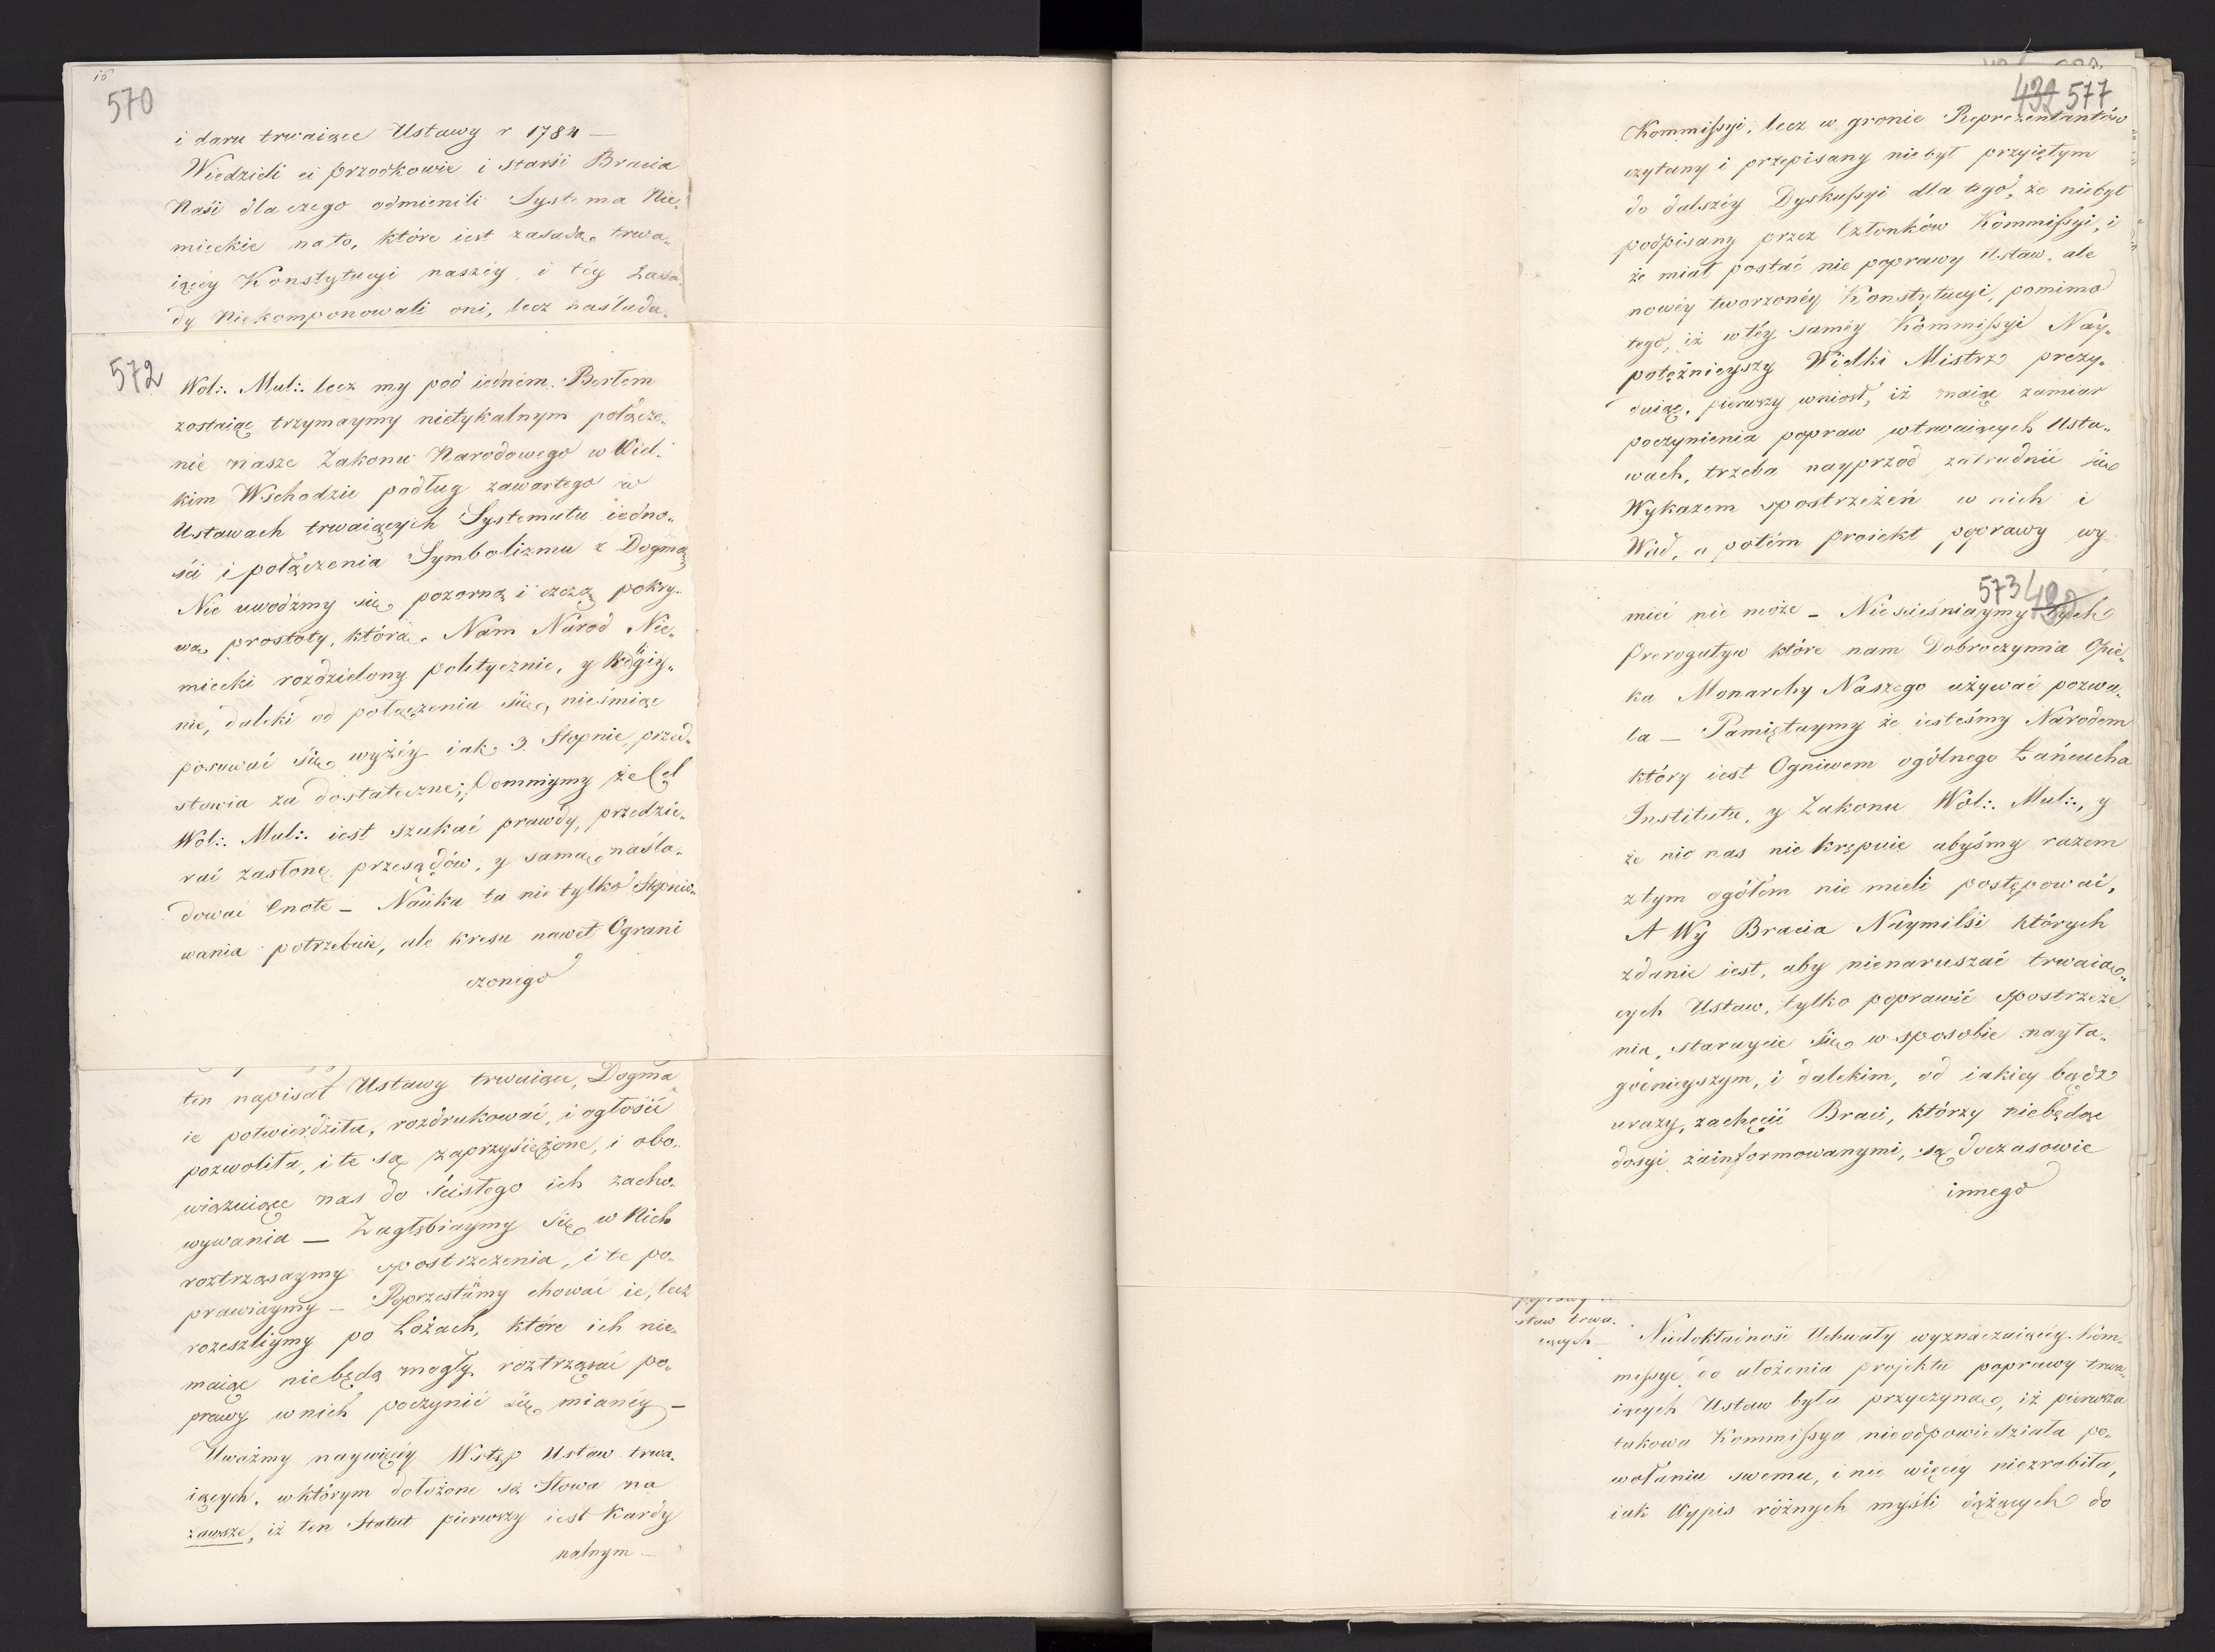 16
570
i daru trwaiące Ustawy r 1784 —
Wiedzieli ci przodkowie i starsi Bracia
Nasi dla czego odmienili Systema Nie„
mieckie na to, które iest zasadą trwa„
iącéy Konstytucyi naszéy i téy Zasa„
dy Niekomponowali oni, lecz naśladu„
572
Wol:. Mul:. lecz my pod iedném Berłem
zostaiąc trzymaymy nietykalnym połącze„
nie nasze Zakonu Narodowego w Wiel„
kim Wschodzie podług zawartego w
Ustawach trwaiących Systematu iedno„
ści i połączenia Symbolizmu z Dogmą
Nie uwodźmy się pozorną i czczą pokry„
wą prostoty, którą Nam Naród Nie„
miecki rozdzielony politycznie, y Religiy„
nie, daleki od połączenia się, nieśmiąc
posuwać się wyżéy iak 3. Stopnie, przed„
stawia za dostateczne; Pomniymy że Cel
Wol:. Mul:. iest szukać prawdy, przedzie„
rać zasłonę przesądów, y samą naśla„
dować Cnotę — Nauka ta nie tylko Stopnio„
wania potrzebuie, ale kresu nawet Ograni
czonego
ten napisał Ustawy trwaiące, Dogma
ie potwierdziła, rozdrukować, i ogłosić
pozwoliła, i te są zaprzysiężone, i obo„
wiązuiące nas do ścisłego ich zacho„
wywania — Zagłębiaymy się w Nich
roztrząsaymy spostrzeżenia, i te po„
prawiaymy — Poprzestańmy chować ie, lecz
rozeszliymy po Lożach, które ich nie„
maiąc niebędą mogły roztrząsać po„
prawy w nich poczynić się mianéy —
Uważmy naywięcéy Wstęp Ustaw trwa„
iących, w którym dołożone są Słowa na
zawsze, iż ten Statut pierwszy iest Kardy
nalnym —
432 577
Kommissyi, lecz w gronie Reprezentantów
czytany i przepisany niebył przyiętym
do dalszéy Dyskussyi dla tego, że niebył
podpisany przez Członków Kommissyi, i
że miał postać nie poprawy Ustaw, ale
nowéy tworzonéy Konstytucyi, pomimo
tego, iż w téy saméy Kommissyi Nay„
potężnieyszy Wielki Mistrz prezy„
duiąc, pierwszy wniosł, iż maiąc zamiar
poczynienia popraw w trwaiących Usta„
wach, trzeba nayprzod zatrudnić się
Wykazem spostrzeżeń w nich i
Wad, a potém proiekt poprawy wy
573
mieć nie może — Nieścieśniaymy tych
Prerogatyw które nam Dobroczynna Opie„
ka Monarchy Naszego używać pozwa„
la — Pamiętaymy że iesteśmy Narodem
który iest Ogniwem ogólnego Łańcucha
Instituta, y Zakonu Wol:. Mul:., y
że nic nas nie Krępuie abyśmy razem
z tym ogółem nie mieli postępować.
A Wy Bracia Naymilsi których
zdanie iest, aby nienaruszać trwaią„
cych Ustaw, tylko poprawić spostrzeże
nia, staraycie się w sposobie nayła„
godnieyszym, i dalekim, od iakiey bądz
urazy, zachęcić Braci, którzy niebędąc
dosyć zainformowanymi, są doczasowie
innego
staw trwa„
iących —
Niedokładność Uchwały wyznaczaiącéy Kom„
missyę do ułożenia projektu poprawy trwa„
iących Ustaw była przyczyną, iż pierwsza
takowa Kommissya nieodpowiedziała po„
wołaniu swemu, i nic więcéy niezrobiła,
iak Wypis różnych myśli dążących do